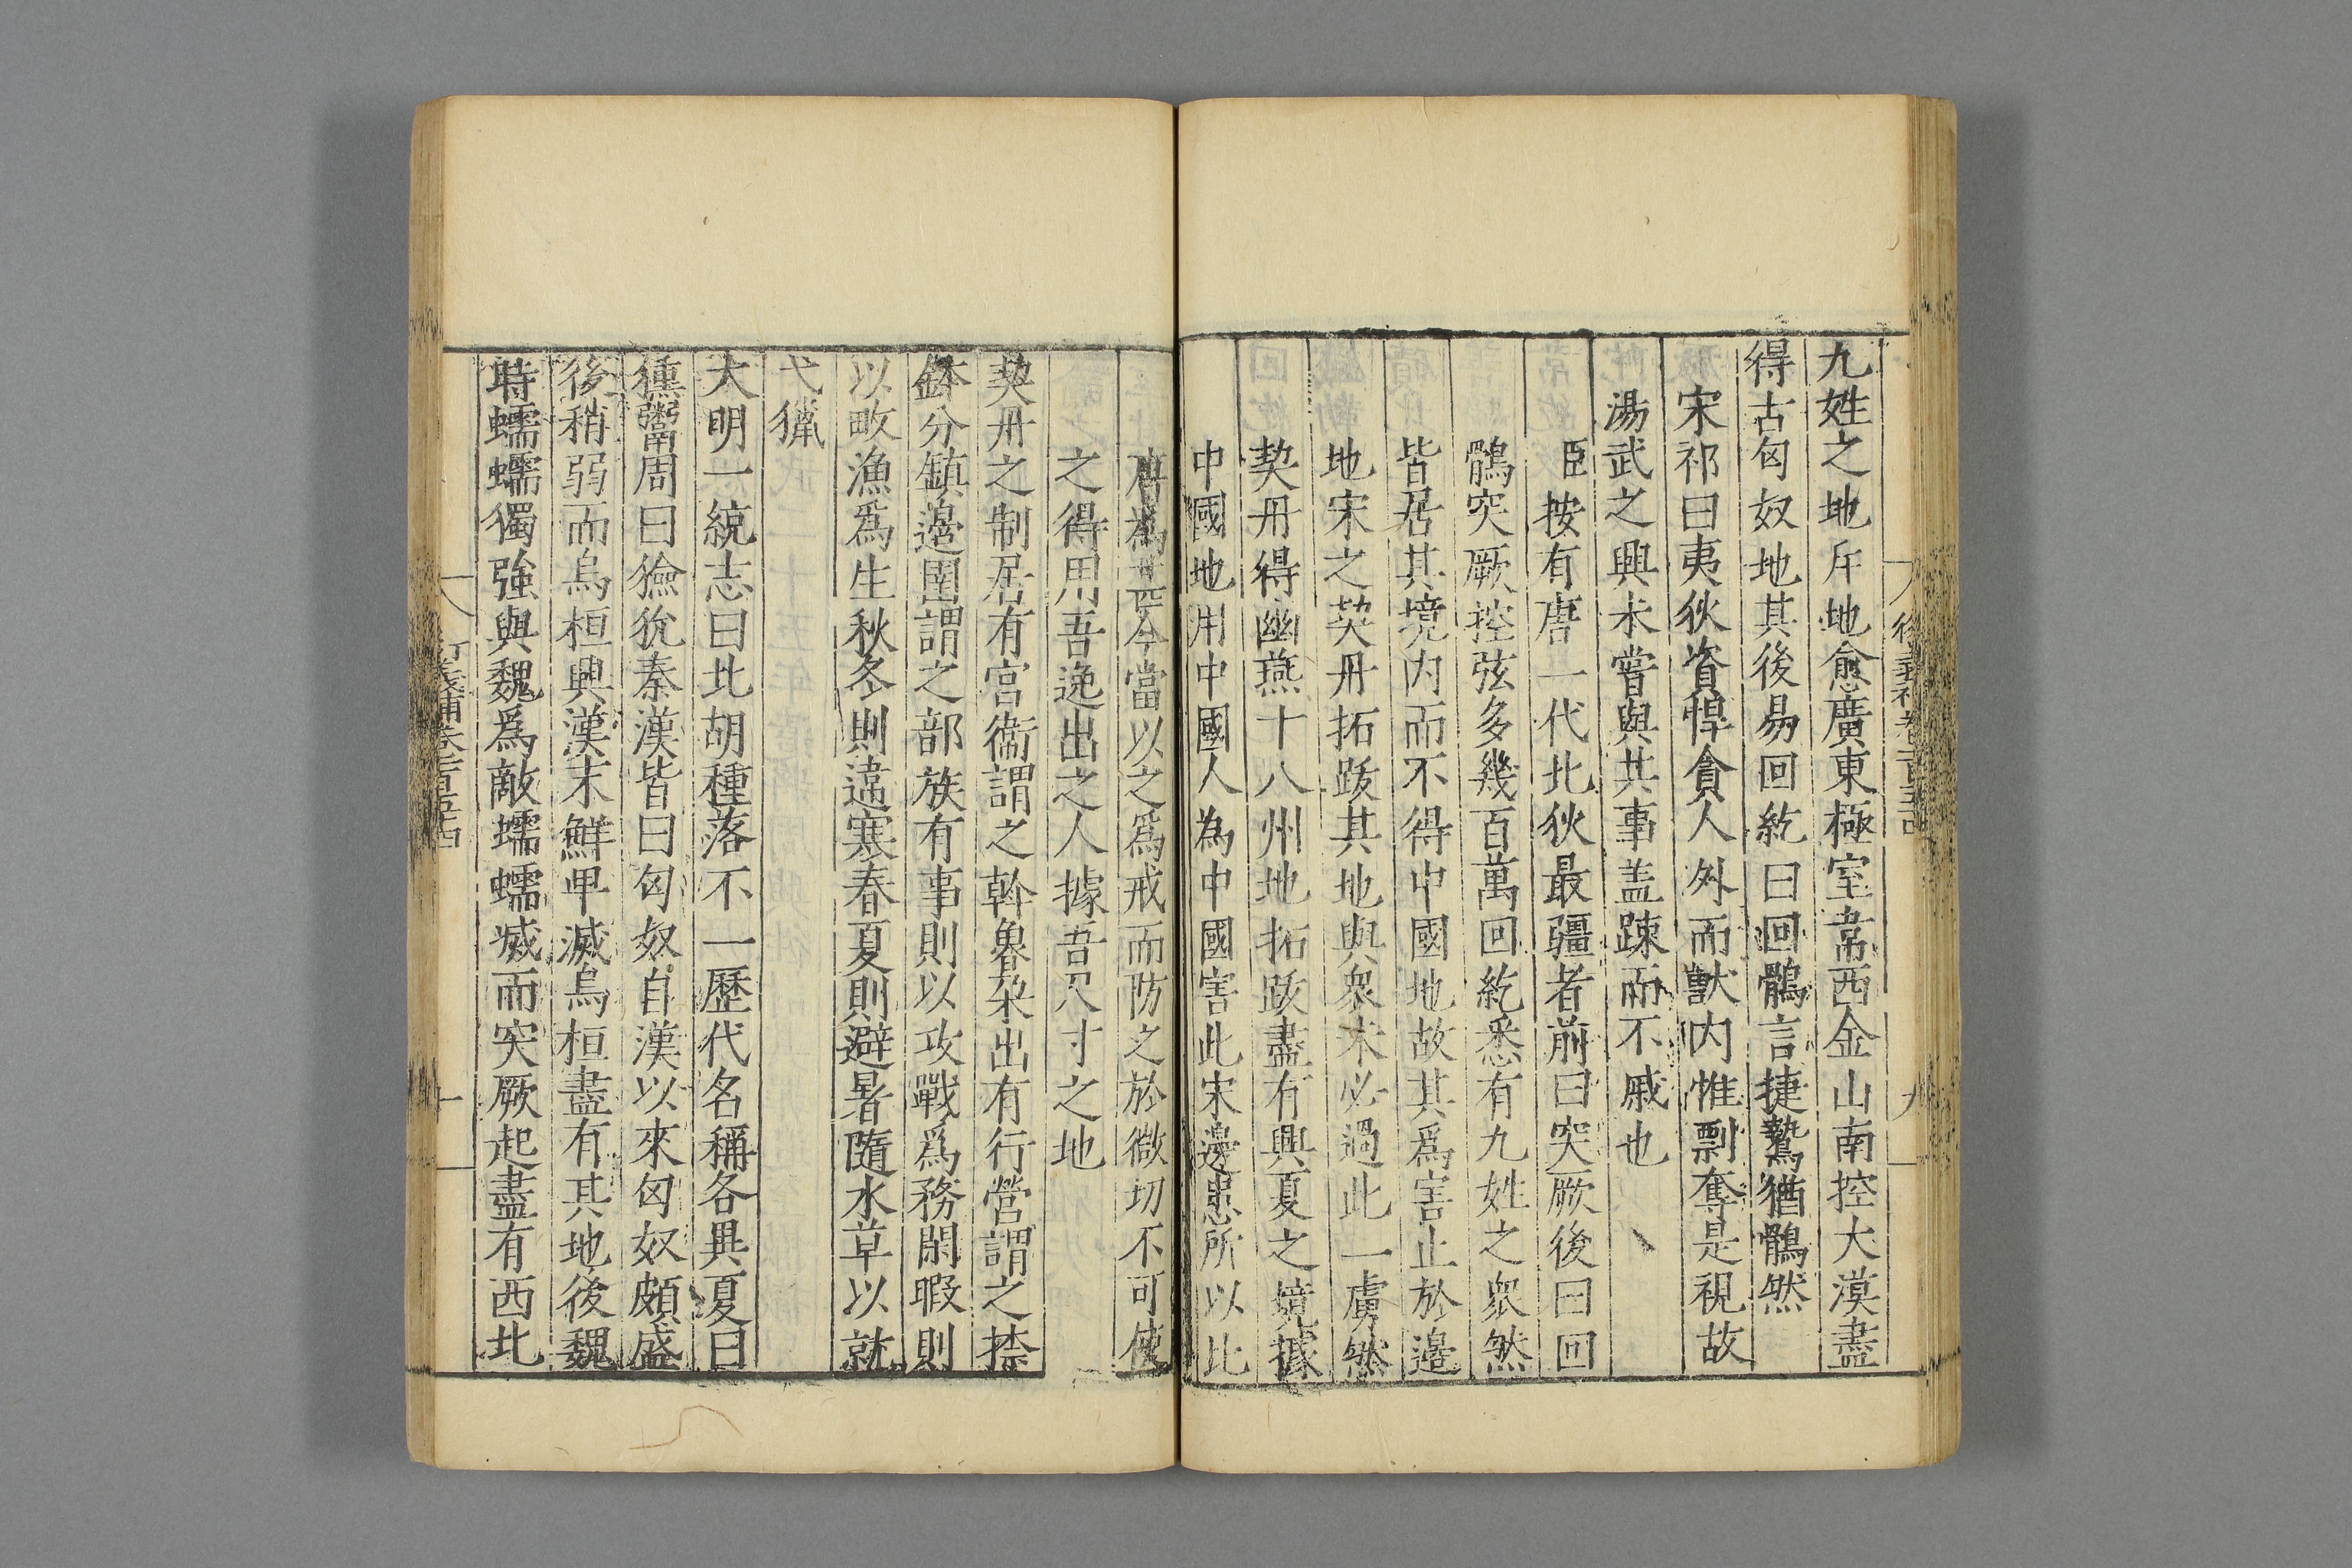 九姓之地斥地愈廣東極室韋西金山南控大漠盡
得古匈奴地其後易回紇曰回鶻言捷鷙猶鶻然
宋祁曰夷狄資悍貪人外而獸內惟剽奪是視故
湯武之興未嘗與共事盖踈而不戚也
臣按有唐一代北狄最疆者前曰突厥後曰回
鶻突厥控弦多幾百萬回紇悉有九姓之衆然
皆居其境内而不得中國地故其爲害止於邉
地宋之契丹拓跋其地與衆未必過此一虜然
契丹得幽燕十八州地拓跋盡有興夏之境據
中國地用中國人為中國害此宋邊患所以比
唐為甚今當以之爲戒而防之於微切不可使
之得用吾逸出之人據吾尺寸之地
契丹之制居有宮衞謂之斡魯朶出有行營謂之捺
鉢分鎮邊圉謂之部族有事則以攻戰爲務閑暇則
以畋漁爲生秋冬則違寒春夏則避暑隨水草以就
弋獵
大明一統志曰北胡種落不一歷代名稱各異夏曰
獯鬻周曰獫狁秦漢皆曰匈奴自漢以來匈奴頗盛
後稍弱而烏桓興漢末鮮卑滅烏桓盡有其地後魏
時蠕蠕獨強與魏爲敵蠕蠕滅而突厥起盡有西北